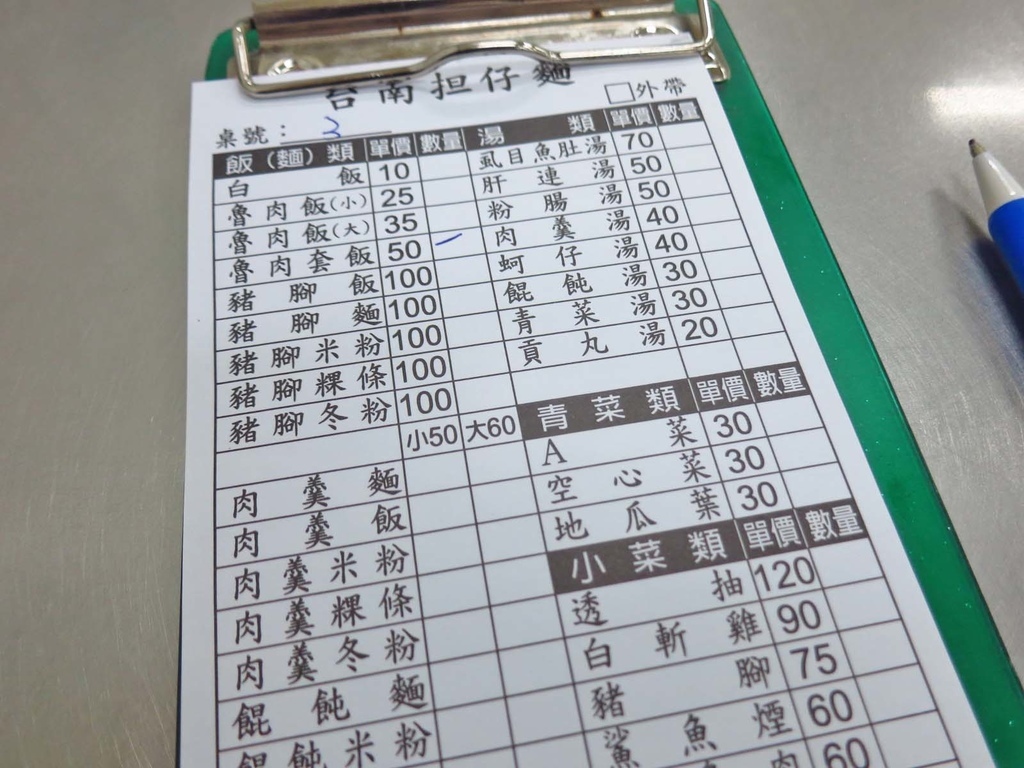 台南担仔麵
外帶
桌號：3
飯（麵）類 單價 數量
白飯 10
魯肉飯(小) 25
魯肉飯(大) 35
魯肉套飯 50
豬腳飯 100
豬腳麵 100
豬腳米粉 100
豬腳粿條 100
豬腳冬粉 100
小50 大60
肉羹麵
肉羹飯
肉羹米粉
肉羹粿條
肉羹冬粉
餛飩麵
餛飩米粉
湯類 單價 數量
虱目魚肚湯 70
肝連湯 50
粉腸湯 50
肉羹湯 40
蚵仔湯 40
餛飩湯 30
青菜湯 30
貢丸湯 20
青菜類 單價 數量
A菜 30
空心菜 30
地瓜葉 30
小菜類 單價 數量
透抽 120
白斬雞 90
豬腳 75
鯊魚煙 60
肉 60